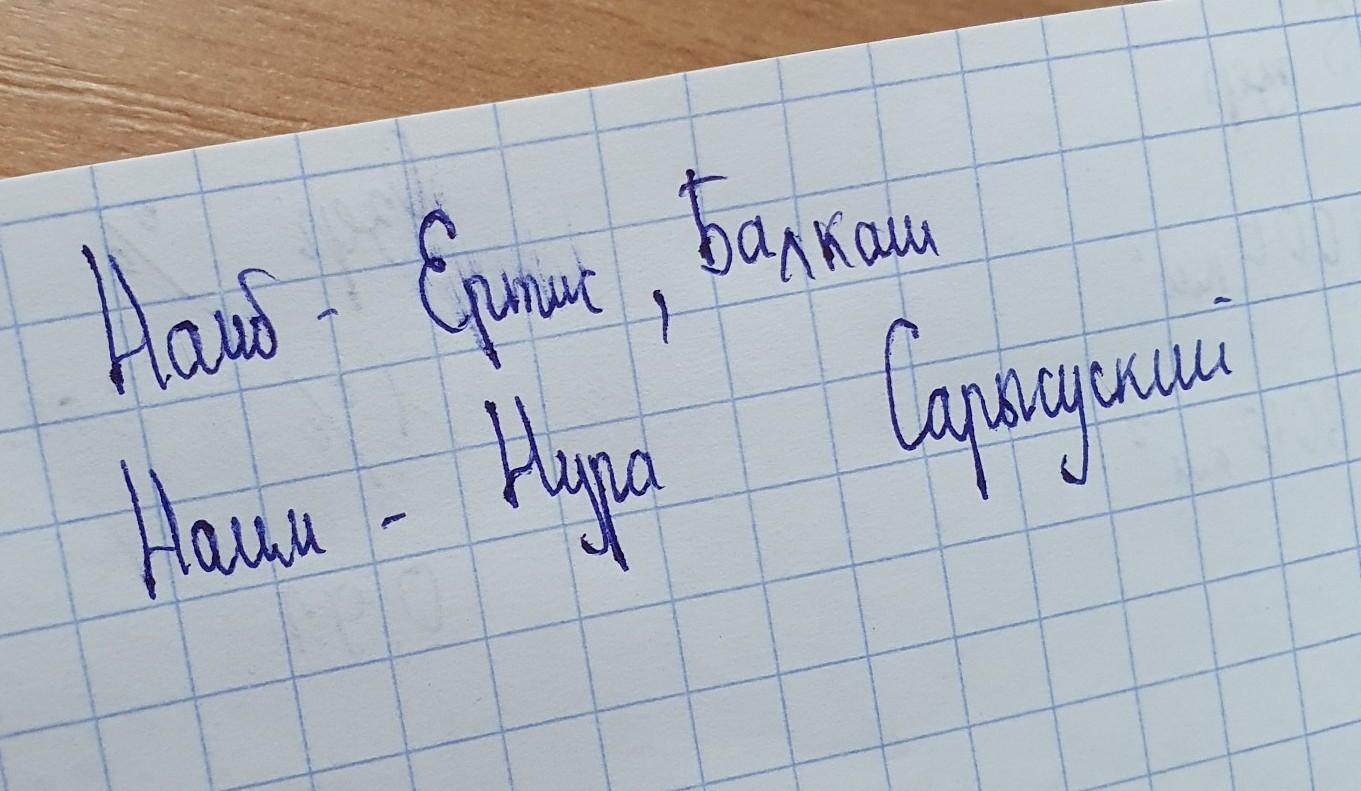 Наиб - Ертис, Балкаш
Наим - Нура Сарысуский